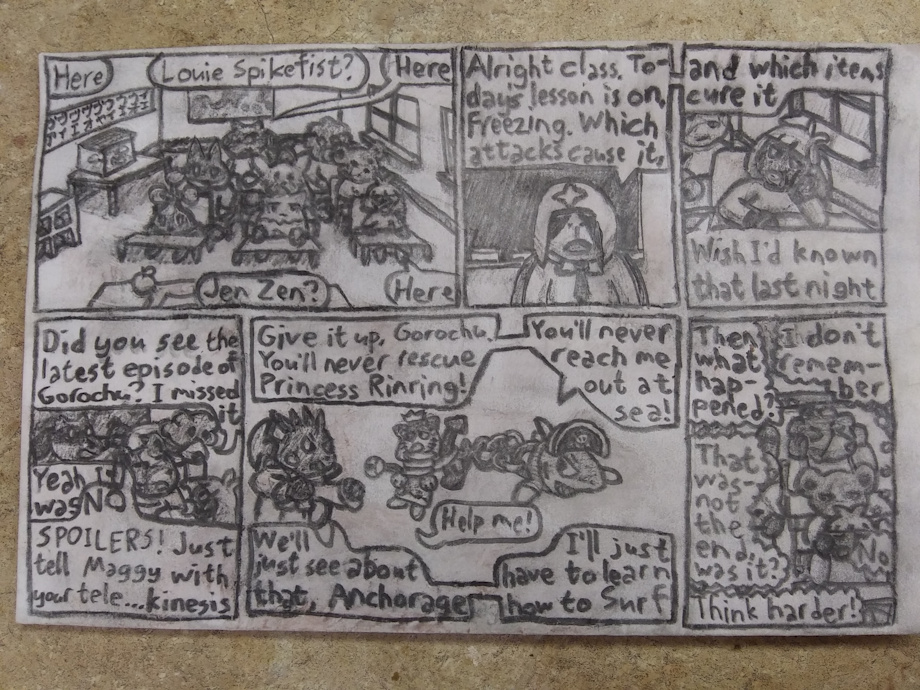 Here
Louie Spikefist?
Here
Jen Zen?
Here
Alright class. To-
day's lesson is on
Freezing. Which
attacks cause it,
and which items
cure it
Wish I'd known
that last night
Did you see the
latest episode of
Gorochu? I missed
it
Yeah I
was
NO
SPOILERS! Just
tell Maggy with
your tele...kinesis
Give it up, Gorochu.
You'll never rescue
Princess Rinring!
You'll never
reach me
out at
sea!
Help me!
We'll
just see about
that, Anchorage
I'll just
have to learn
how to Surf
Then
what
hap-
pened?
I don't
remem-
ber
That
was-
not
the
end,
was it?
No
Think harder!